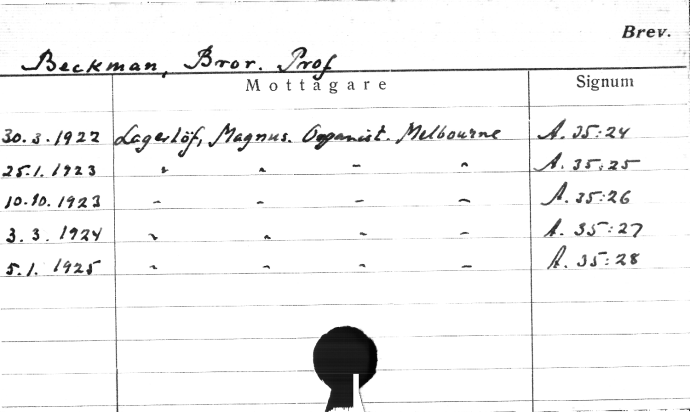 Brev.
Beckman, Bror. Prof
Mottagare Signum
30.3.1922 Lagerlöf, Magnus. Organist. Melbourne A. 35:24
25.1.1923 " " " " A. 35:25
10.10.1923 " " " " A. 35:26
3.3.1924 " " " " A. 35:27
5.1.1925 " " " " A. 35:28